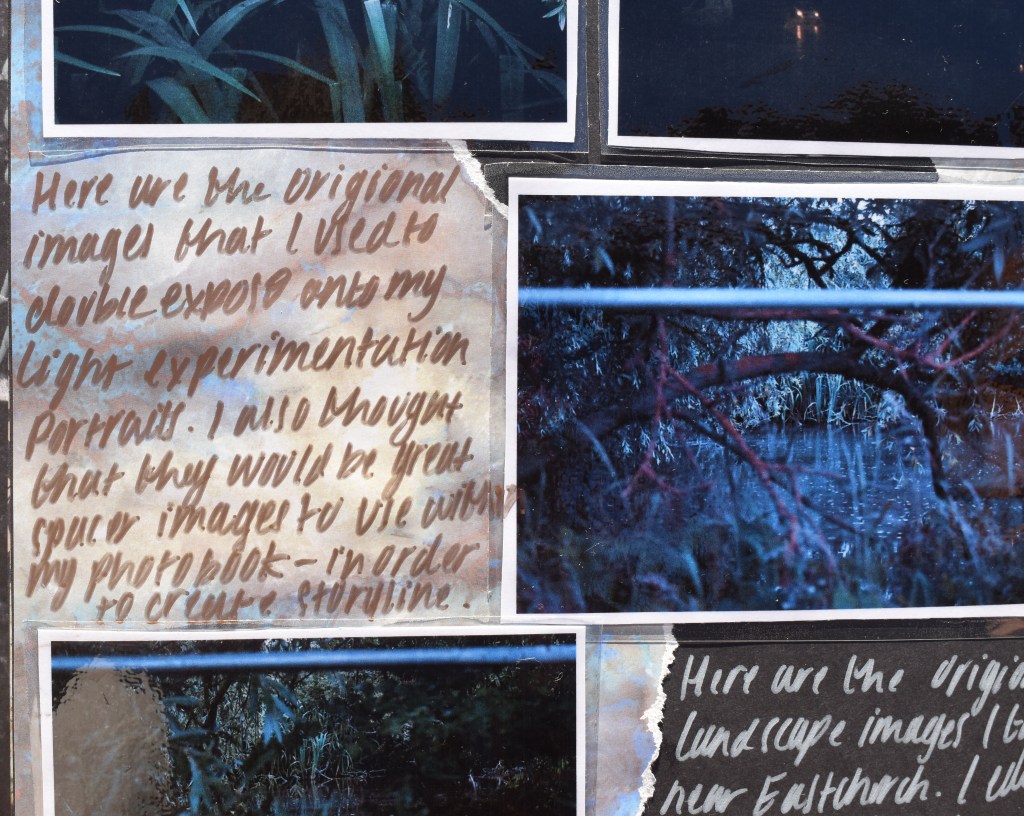 Here are the origional
images that I used to
double expose onto my
light experimentation
Portraits. I also thought
that they would be great
spacer images to use within
my photobook - in order
to create storyline.
Here are the
landscape images I
near Eastchurch. I